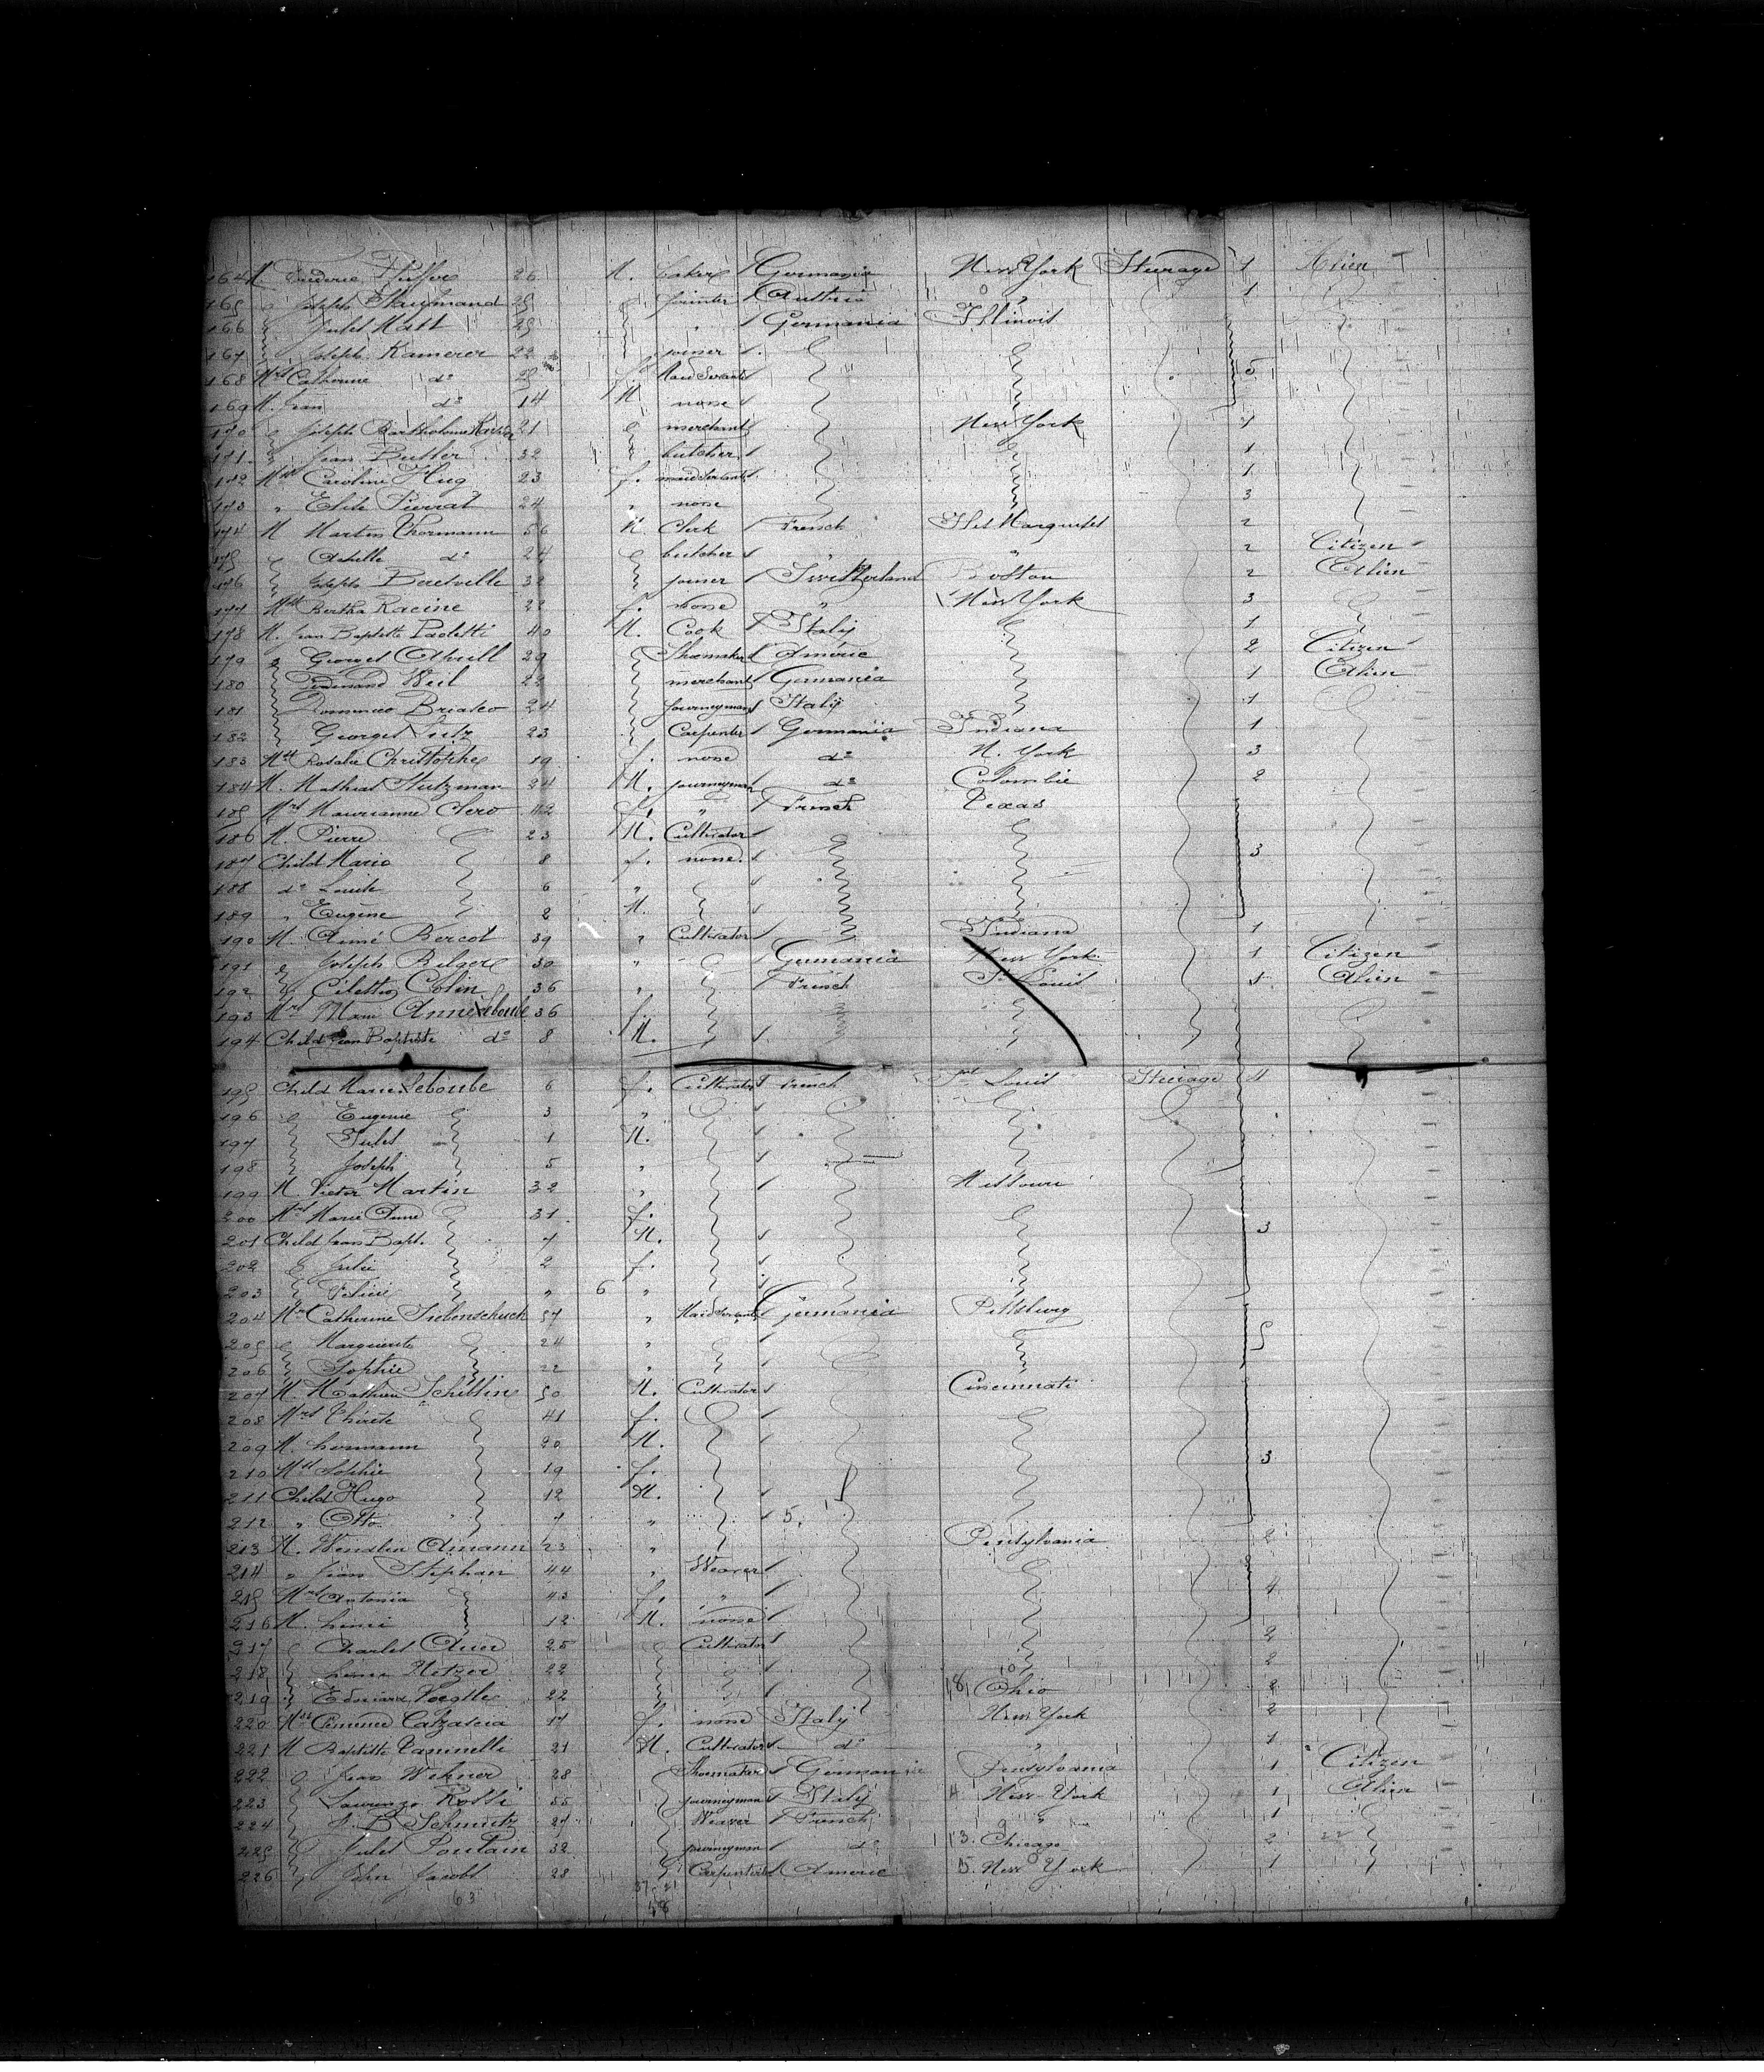 164 M Frederic Pfiffer 26 M. baker Germania New York Steerage 1 Alien
165 Joseph 25 painter Austria " 1
166 Jules Matt 25 " Germania Illinois
167 Joseph Kamerer 22 joiner
168 Mrs Catherine do 25 f. Maid Servant 5
169 M. Jean do 14 M none
170 Joseph Bartholome 21 merchant New York 1
171 Jean Butler 32 butcher 1
172 Mlle Caroline Hug 23 f. maid servant 1
173 " Elise Pierrat 24 " none 3
174 M Martin Thormann 56 M. Clerk French Iles Marquises 2
175 Achille do 24 butcher " " 2 Citizen
176 Joseph Beretville 32 joiner Switzerland Boston 2 Alien
177 Mlle Bertha Racine 22 f. none " New York 3
178 M. Jean Baptiste Paoletti 40 M. Cook Italy 1
179 Georges 29 Shoemaker Americ 2 Citizen
180 Ferdinand Weil 22 merchant Germania 1 Alien
181 24 journeyman Italy 1
182 Georges Lutz 23 Carpenter Germania Indiana 1
183 Mlle Rosalie Christophe 19 f. none do N. York 3
184 M. Mathias Stutzman 24 M. journeyman do Colombie 2
185 Mrs Maurianne Clero 42 f. " French Texas
186 M. Pierre 23 M. Cultivator
187 Child Marie 8 f. none. 3
188 do Louise 6 "
189 " Eugene 2 M.
190 M. Aimé Bercot 39 " Cultivator Indiana 1
191 Joseph Bilger 30 " Germania New York 1 Citizen
192 Colin 36 " French St Louis Alien
193 Mrs Marie Anne Leboube 36 f.
194 Child Jean Baptiste do 8 M.
195 Child Marie Leboube 6 f. Cultivator French St Louis Steerage 4
196 Eugenie 3 "
197 Jules 1 M.
198 Joseph 5 "
199 M Victor Martin 32 " Missouri
200 Mrs Marie Anne 31 f. 3
201 Child Jean Bapt. 7 M.
202 Julie 2 f.
203 " 6 "
204 Mrs Catherine Siebenschuch 57 " Maid Servant Germania Pittsburg
205 Marguerite 24 " 5
206 Sophie 22 "
207 M. Mathieu Schilling 50 M. Cultivator Cincinnati
208 Mrs 41 f.
209 M. hermann 20 M.
210 Mlle Sophie 19 f. 3
211 Child Hugo 12 M.
212 " Otto 7 " 5.
213 M. Wendlin Amann 23 " Pensylvania 2
214 " Jean Stephan 44 " Weaver
215 Mrs Antonia 43 f. " 4
216 M. henri 12 M. none
217 Charles Auer 25 Cultivator 2
218 Metzer 22 10 2
219 Edouard Voegtle 22 18, Ohio 2
220 Mlle Calzascia 17 f. none Italy New York 2
221 M Baptiste Vaninelli 21 M. Cultivator do " 1
222 Jean Wehner 28 Shoemaker Germania Pensylvania 1 Citizen
223 Laurenzo Rossi 55 journeyman Italy 4 New York 1 Alien
224 J. B. Schmutz 27 Weaver French 9 " 1
225 Jules Poulain 32 journeyman do 13. Chicago 2
226 John Jacobs 28 Carpenter Americ 15. New York 1
63